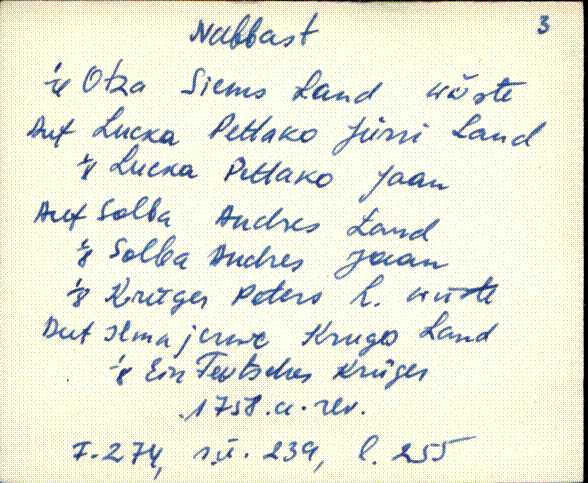 3
Nabbast
1/8 Otza Siems Land wüste
Auf Lucka Pettako Jürri Land
1/8 Lucka Pettako Jaan
Auf Solba Andres Land
1/8 Solba Andres Jaan
1/8 Krüger Peters L. wüste
Auf Ilmajerwe Krugs Land
1/8 Ein Teutscher Krüger
1758.a.rev.
F.274, s.ü. 239, l. 255